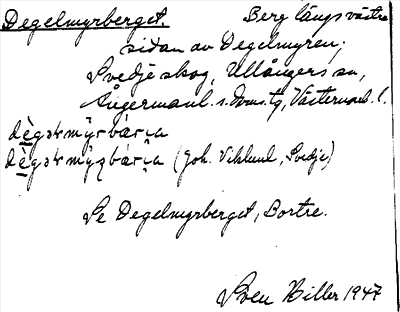 Degelmyrberget. Berg längs västra
sidan av Degelmyren;
Svedje skog, Ullångers sn,
Ångermanl. s. domstg, Västernorrl. l.
(Joh. Viklund, Svedje)
Se Degelmyrberget, Bortre.
Sven Hiller 1947